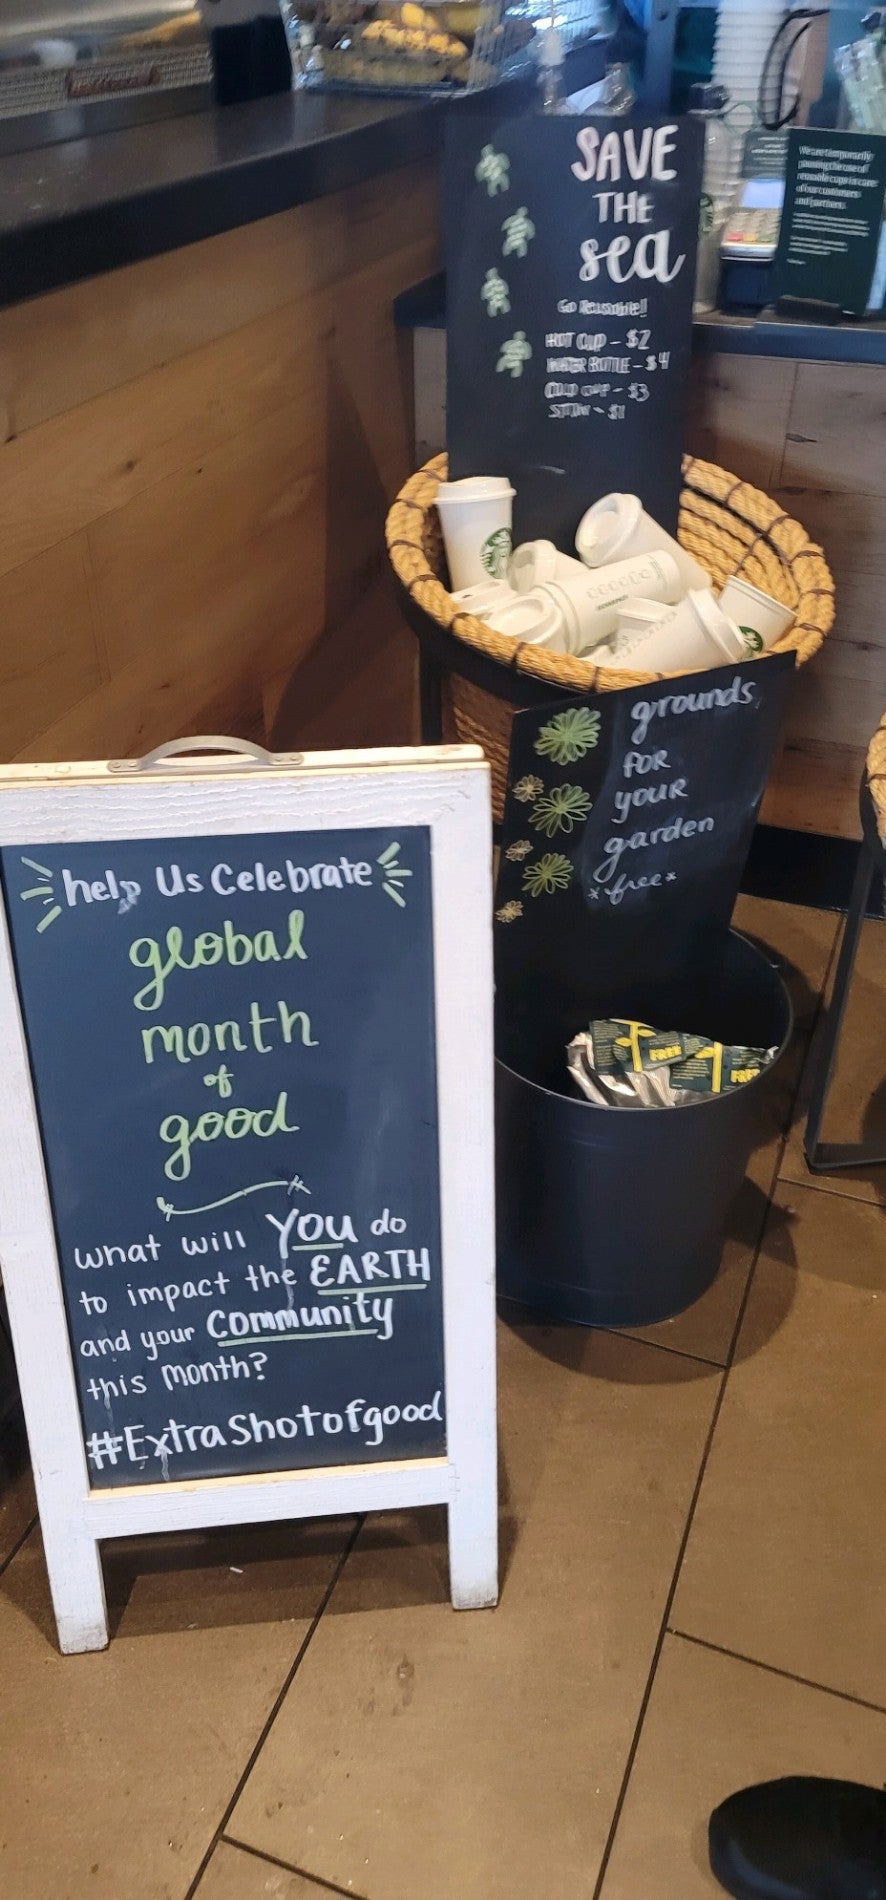 SAVE
THE
sea
Go Reusable!!
HOT CUP - $2
WATER BOTTLE - $4
COLD CUP - $3
STRAW - $1
We are temporarily
pausing the use of
reusable cups in care
of our customers
and partners.
grounds
FOR
YOUR
garden
*free*
FREE
FREE
help Us Celebrate
global
month
of
good
What will YOU do
to impact the EARTH
and your Community
this month?
#ExtraShotofgood